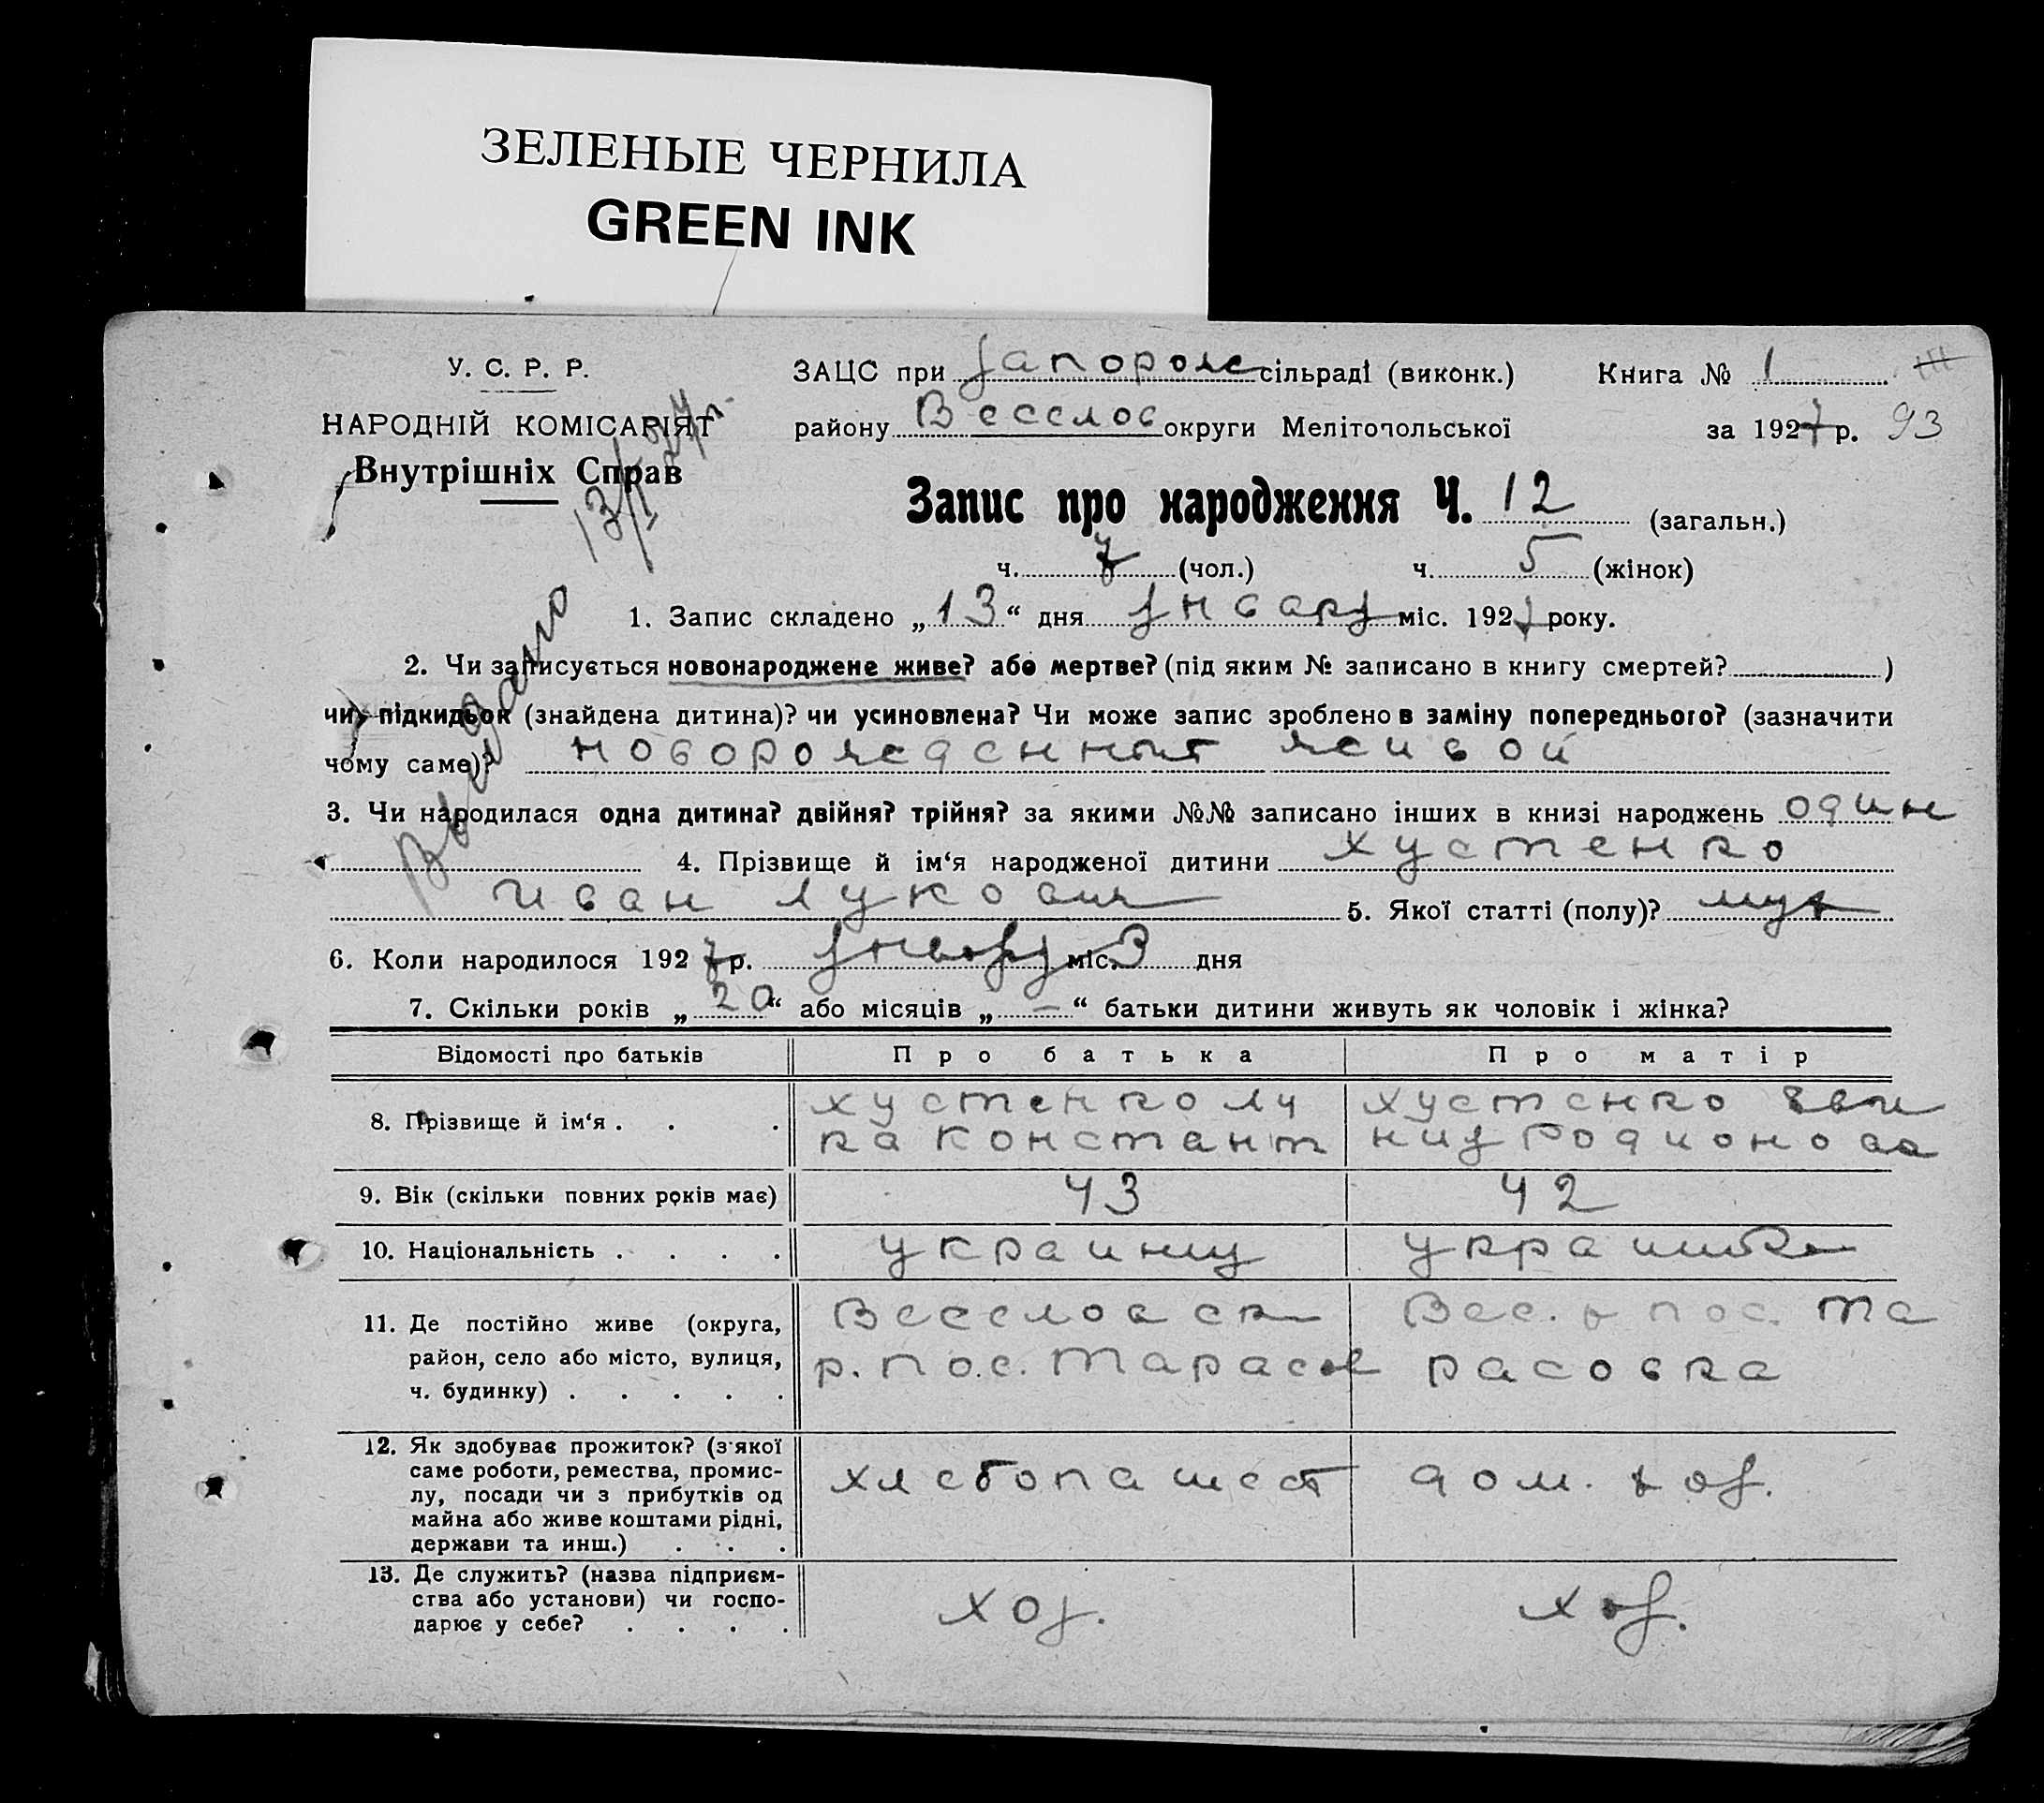 ЗЕЛЕНЫЕ ЧЕРНИЛА
GREEN INK
У. С. Р. Р.
НАРОДНІЙ КОМІСАРІЯТ
Внутрішніх Справ
ЗАЦС при Запорож сільраді (виконк.)
району Веселов округи Мелітопольської
Книга № 1
за 1927 р. 93
Выдано 13/I 27 г.
Запис про народження Ч. 12 (загальн.)
ч. 7 (чол.) ч. 5 (жінок)
1. Запис складено „13“ дня января міс. 1927 року.
2. Чи записується новонароджене живе? або мертве? (під яким № записано в книгу смертей? )
чи підкидьок (знайдена дитина)? чи усиновлена? Чи може запис зроблено в заміну попереднього? (зазначити
чому саме)? новорожденный живой
3. Чи народилася одна дитина? двійня? трійня? за якими №№ записано інших в книзі народжень один
4. Прізвище й ім‘я народженої дитини Хустенко
Иван Лукович 5. Якої статті (полу)? муж
6. Коли народилося 1927 р. январь міс. 3 дня
7. Скільки років „20“ або місяців „–“ батьки дитини живуть як чоловік і жінка?
Відомості про батьків Про батька Про матір
8. Прізвище й ім‘я . . . Хустенко Лу Хустенко Евги
ка Констант ния Родионова
9. Вік (скільки повних років має) 43 42
10. Національність . . . . украинц украинка
11. Де постійно живе (округа, Веселовск Вес. р пос. Та
район, село або місто, вулиця, р. пос. Тарасов расовка
ч. будинку) . . . . .
12. Як здобуває прожиток? (з якої
саме роботи, ремества, промис- хлебопашест дом. хоз.
лу, посади чи з прибутків од
майна або живе коштами рідні,
держави та инш.) . . .
13. Де служить? (назва підприєм-
ства або установи) чи госпо- хоз. хоз.
дарює у себе? . . . .